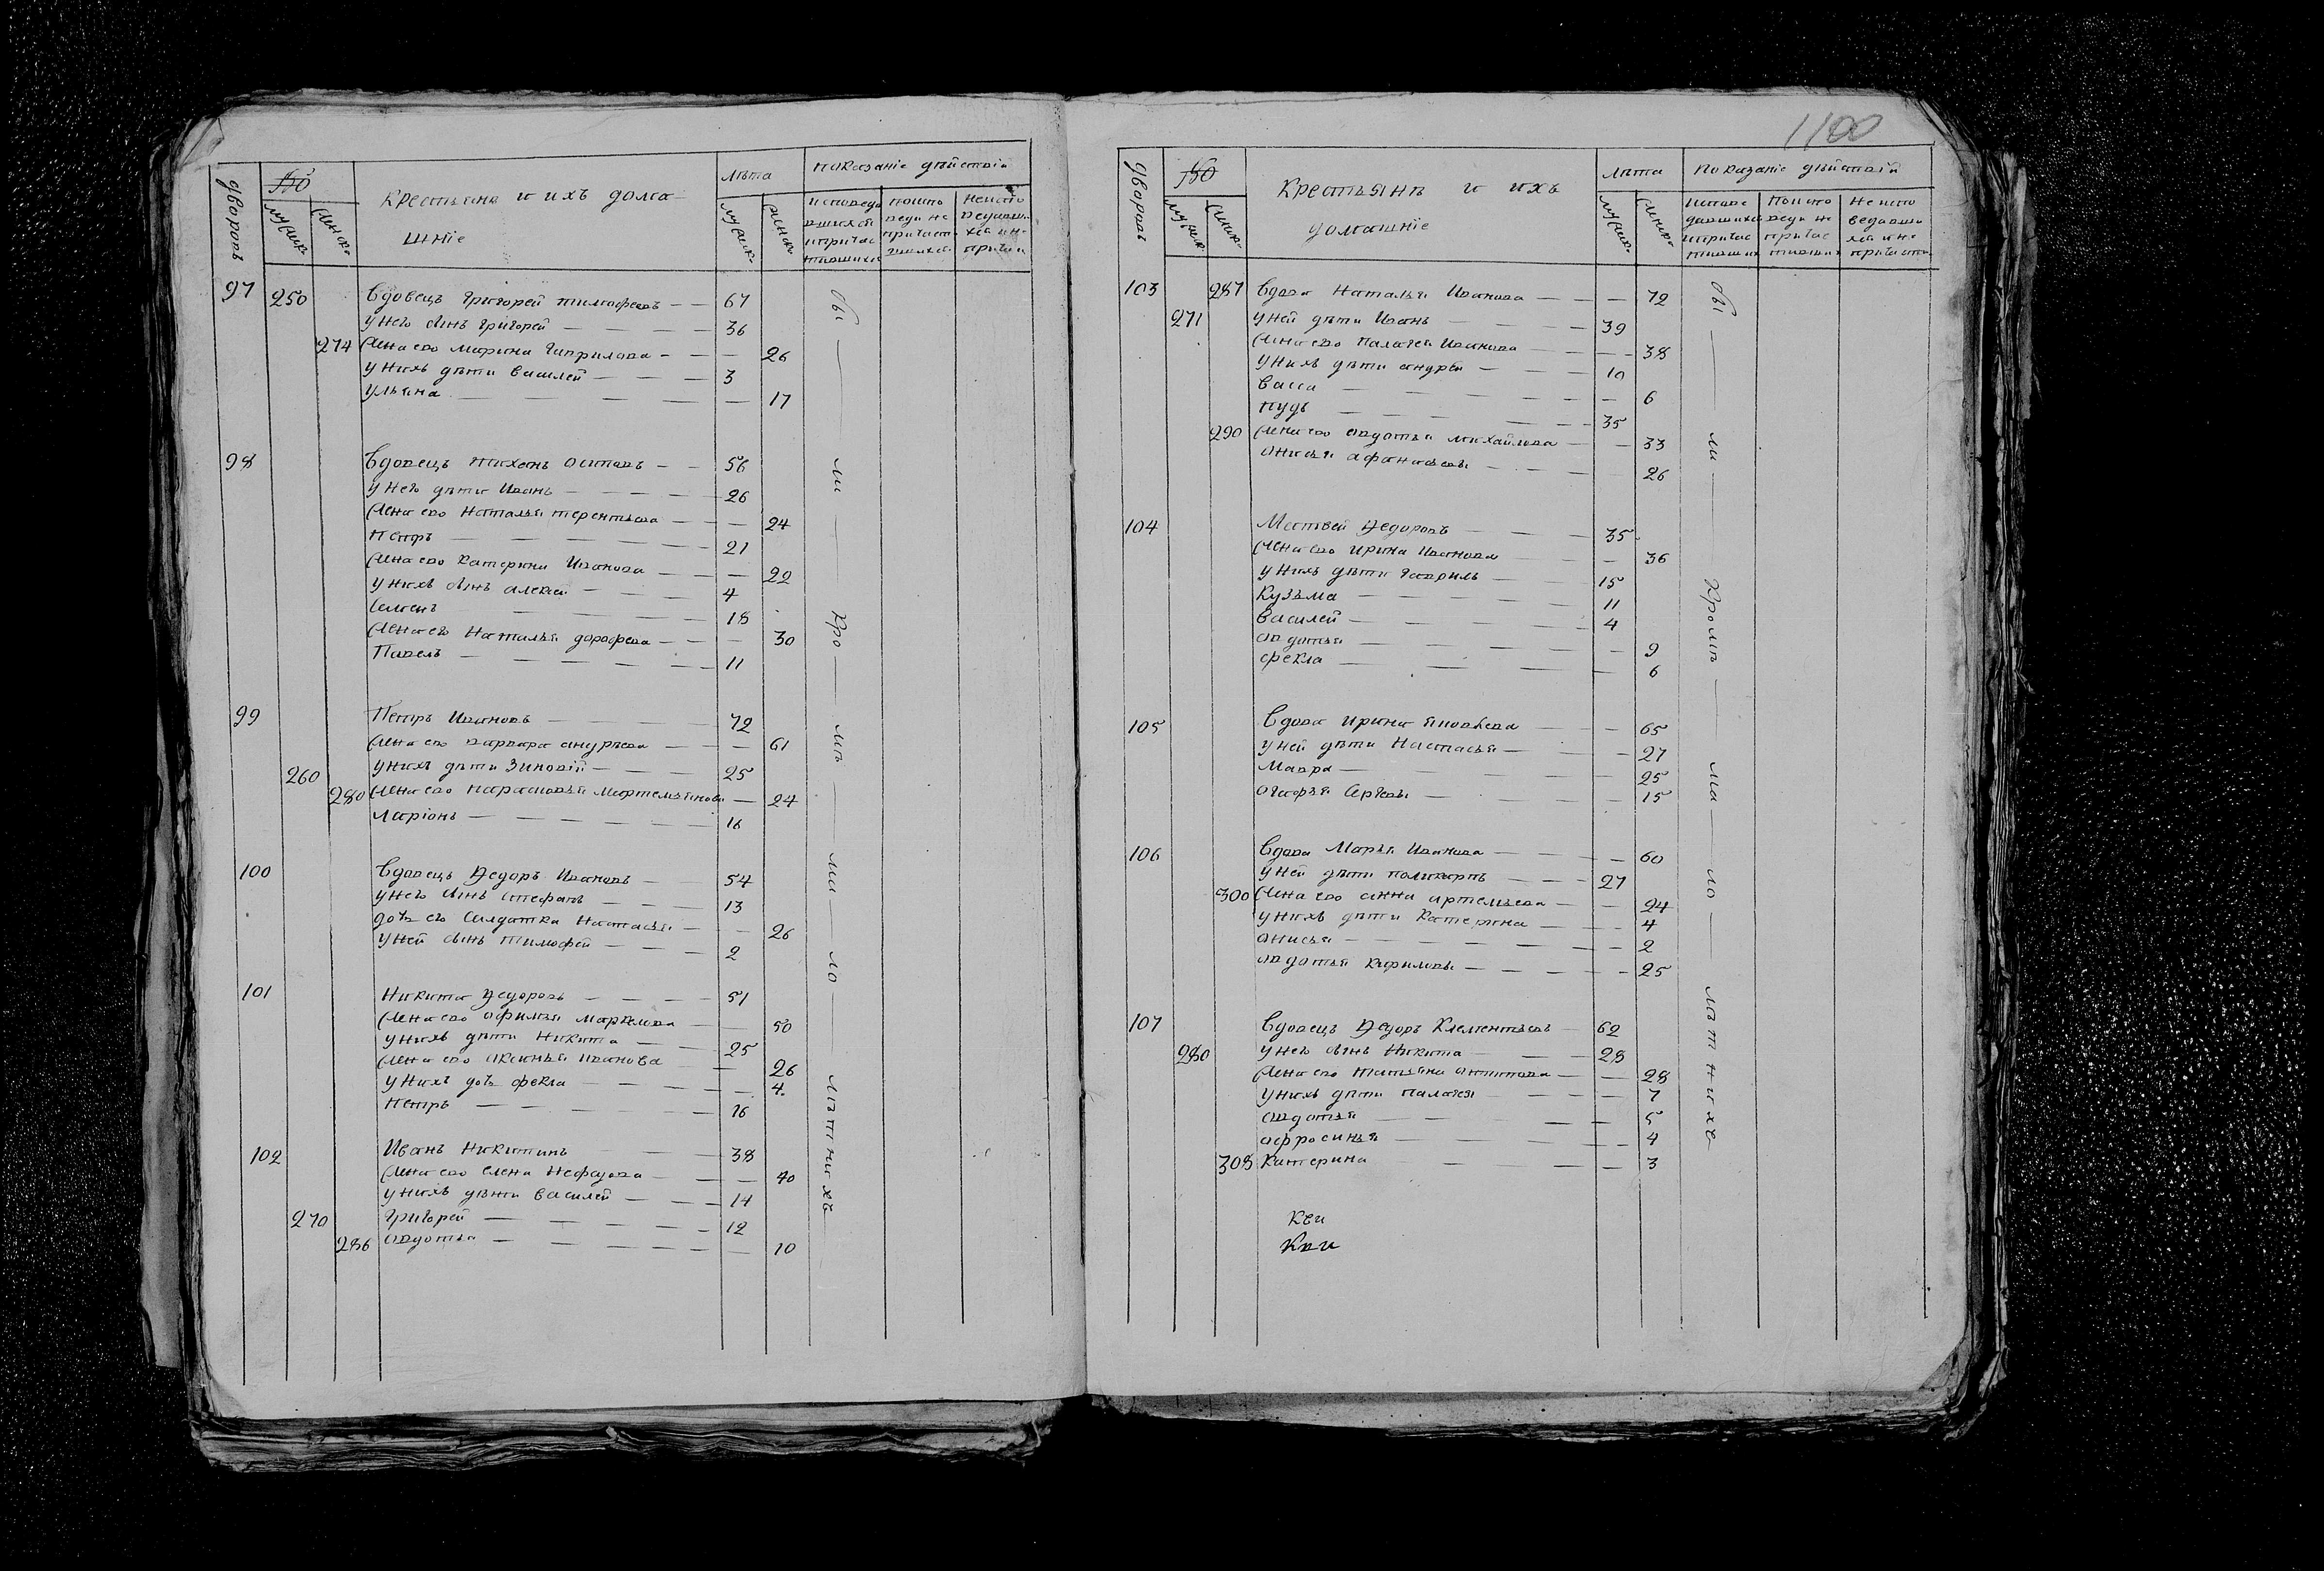 1100
дворовъ
№
мужск.
женск.
крестьяне и ихъ домашніе
лѣта
мужск.
женск.
показаніе дѣйствій
исповѣдавшихся и причастившихся
по исповѣди не причастившихся
не исповѣдавшихся и не причаст
97 250 вдовецъ григорей тимофеевъ 67
у него сынъ григорей 36
274 жена ево марина гаврилова 26
у нихъ дѣти василей 3
ульяна 17
98 вдовецъ тихонъ осиповъ 56
у него дѣти иванъ 26
жена ево наталья терентьева 24
петръ 21
жена ево катерина иванова 22
у нихъ сынъ алексей 4
семенъ 18
жена ево наталья дорофеева 30
павелъ 11
99 петръ ивановъ 72
жена ево варвара андреева 61
260 у нихъ дѣти зиновій 25
280 жена ево парасковья мартемьянова 24
ларіонъ 16
100 вдовецъ федоръ ивановъ 54
у него сынъ стефанъ 13
дочь ево салдатка настасья 26
у ней сынъ тимофей 2
101 никита федоровъ 51
жена ево афимья маркелова 50
у нихъ дѣти никита 25
жена ево аксинья иванова 26
у нихъ дочь фекла 4
петръ 16
102 иванъ никитинъ 38
жена ево елена нефедова 40
у нихъ дѣти василей 14
270 григорей 12
286 авдотья 10
бы ли кро мѣ ма ло лѣтнихъ
дворовъ
№
мужск.
женск.
крестьянѣ и ихъ
домашніе
лѣта
мужск.
женск.
показаніе дѣйствій
исповедавшихся и причастившихся
по исповеди не причастившихся
не исповедавшихся и не причаст
103 287 вдова наталья иванова 72
271 у ней дѣти иванъ 39
жена ево палагея иванова 38
у нихъ дѣти андрей 10
васса 6
пудъ 35
290 жена ево авдотья михайлова 33
анисья афонасьева 26
104 матвей федоровъ 35
жена ево ирина иванова 36
у нихъ дѣти гаврилъ 15
кузьма 11
василей 4
авдотья 9
фекла 6
105 вдова ирина яковлева 65
у ней дѣти настасья 27
мавра 25
агафья 15
106 вдова марья иванова 60
у ней дѣти поликарпъ 27
300 жена ево анна артемьева 24
у нихъ дѣти катерина 4
анисья 2
авдотья 25
107 вдовецъ федоръ клементьевъ 62
280 у него сынъ никита 28
жена ево татьяна антипова 28
у нихъ дѣти палагея 7
авдотья 5
афросинья 4
308 катерина 3
бы ли кромѣ ма ло лѣтнихъ